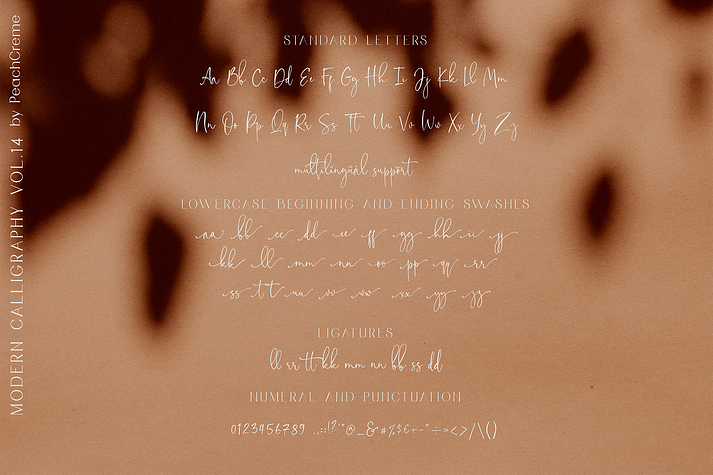 MODERN CALLIGRAPHY VOL.14 by PeachCreme
STANDARD LETTERS
Aa Bb Cc Dd Ee Ff Gg Hh Ii Jj Kk Ll Mm
Nn Oo Pp Qq Rr Ss Tt Uu Vv Ww Xx Yy Zz
mültïlingüâl suppört
LOWERCASE BEGINNING AND ENDING SWASHES
aa bb cc dd ee ff gg hh ii jj
kk ll mm nn oo pp qq rr
ss tt uu vv ww xx yy zz
LIGATURES
ll rr tt kk mm nn bb ss dd
NUMERAL AND PUNCTUATION
0123456789 .,:;!?'"@_&#%$€+-*÷=<>/\()